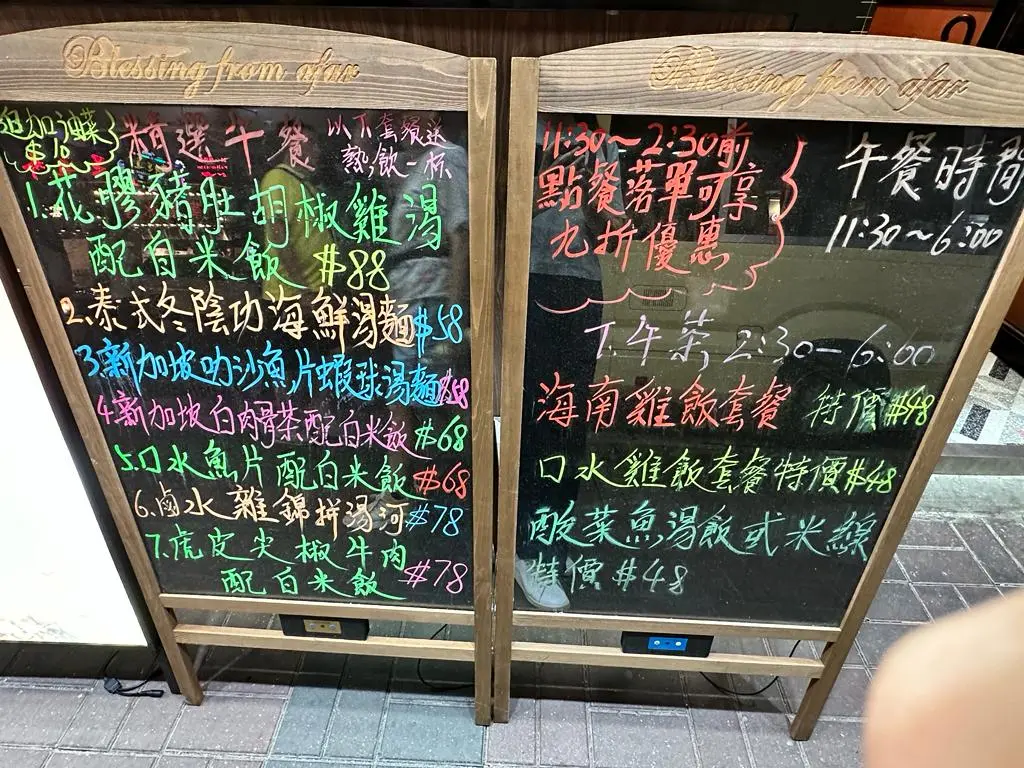 Blessing from afar
加油菜
$10
精選午餐
以下套餐送
熱飲一杯
1.花膠豬肚胡椒雞湯
配白米飯 $88
2.泰式冬陰功海鮮湯麵$58
3.新加坡叻沙魚片蝦球湯麵$58
4.新加坡白肉骨茶配白米飯 $68
5.口水魚片配白米飯 $68
6.鹵水雜錦拼湯河 $78
7.虎皮尖椒牛肉
配白米飯 $78
Blessing from afar
11:30~2:30前
點餐落單可享
九折優惠
午餐時間
11:30~6:00
下午茶 2:30-6:00
海南雞飯套餐 特價$48
口水雞飯套餐特價$48
酸菜魚湯飯或米線
特價 $48